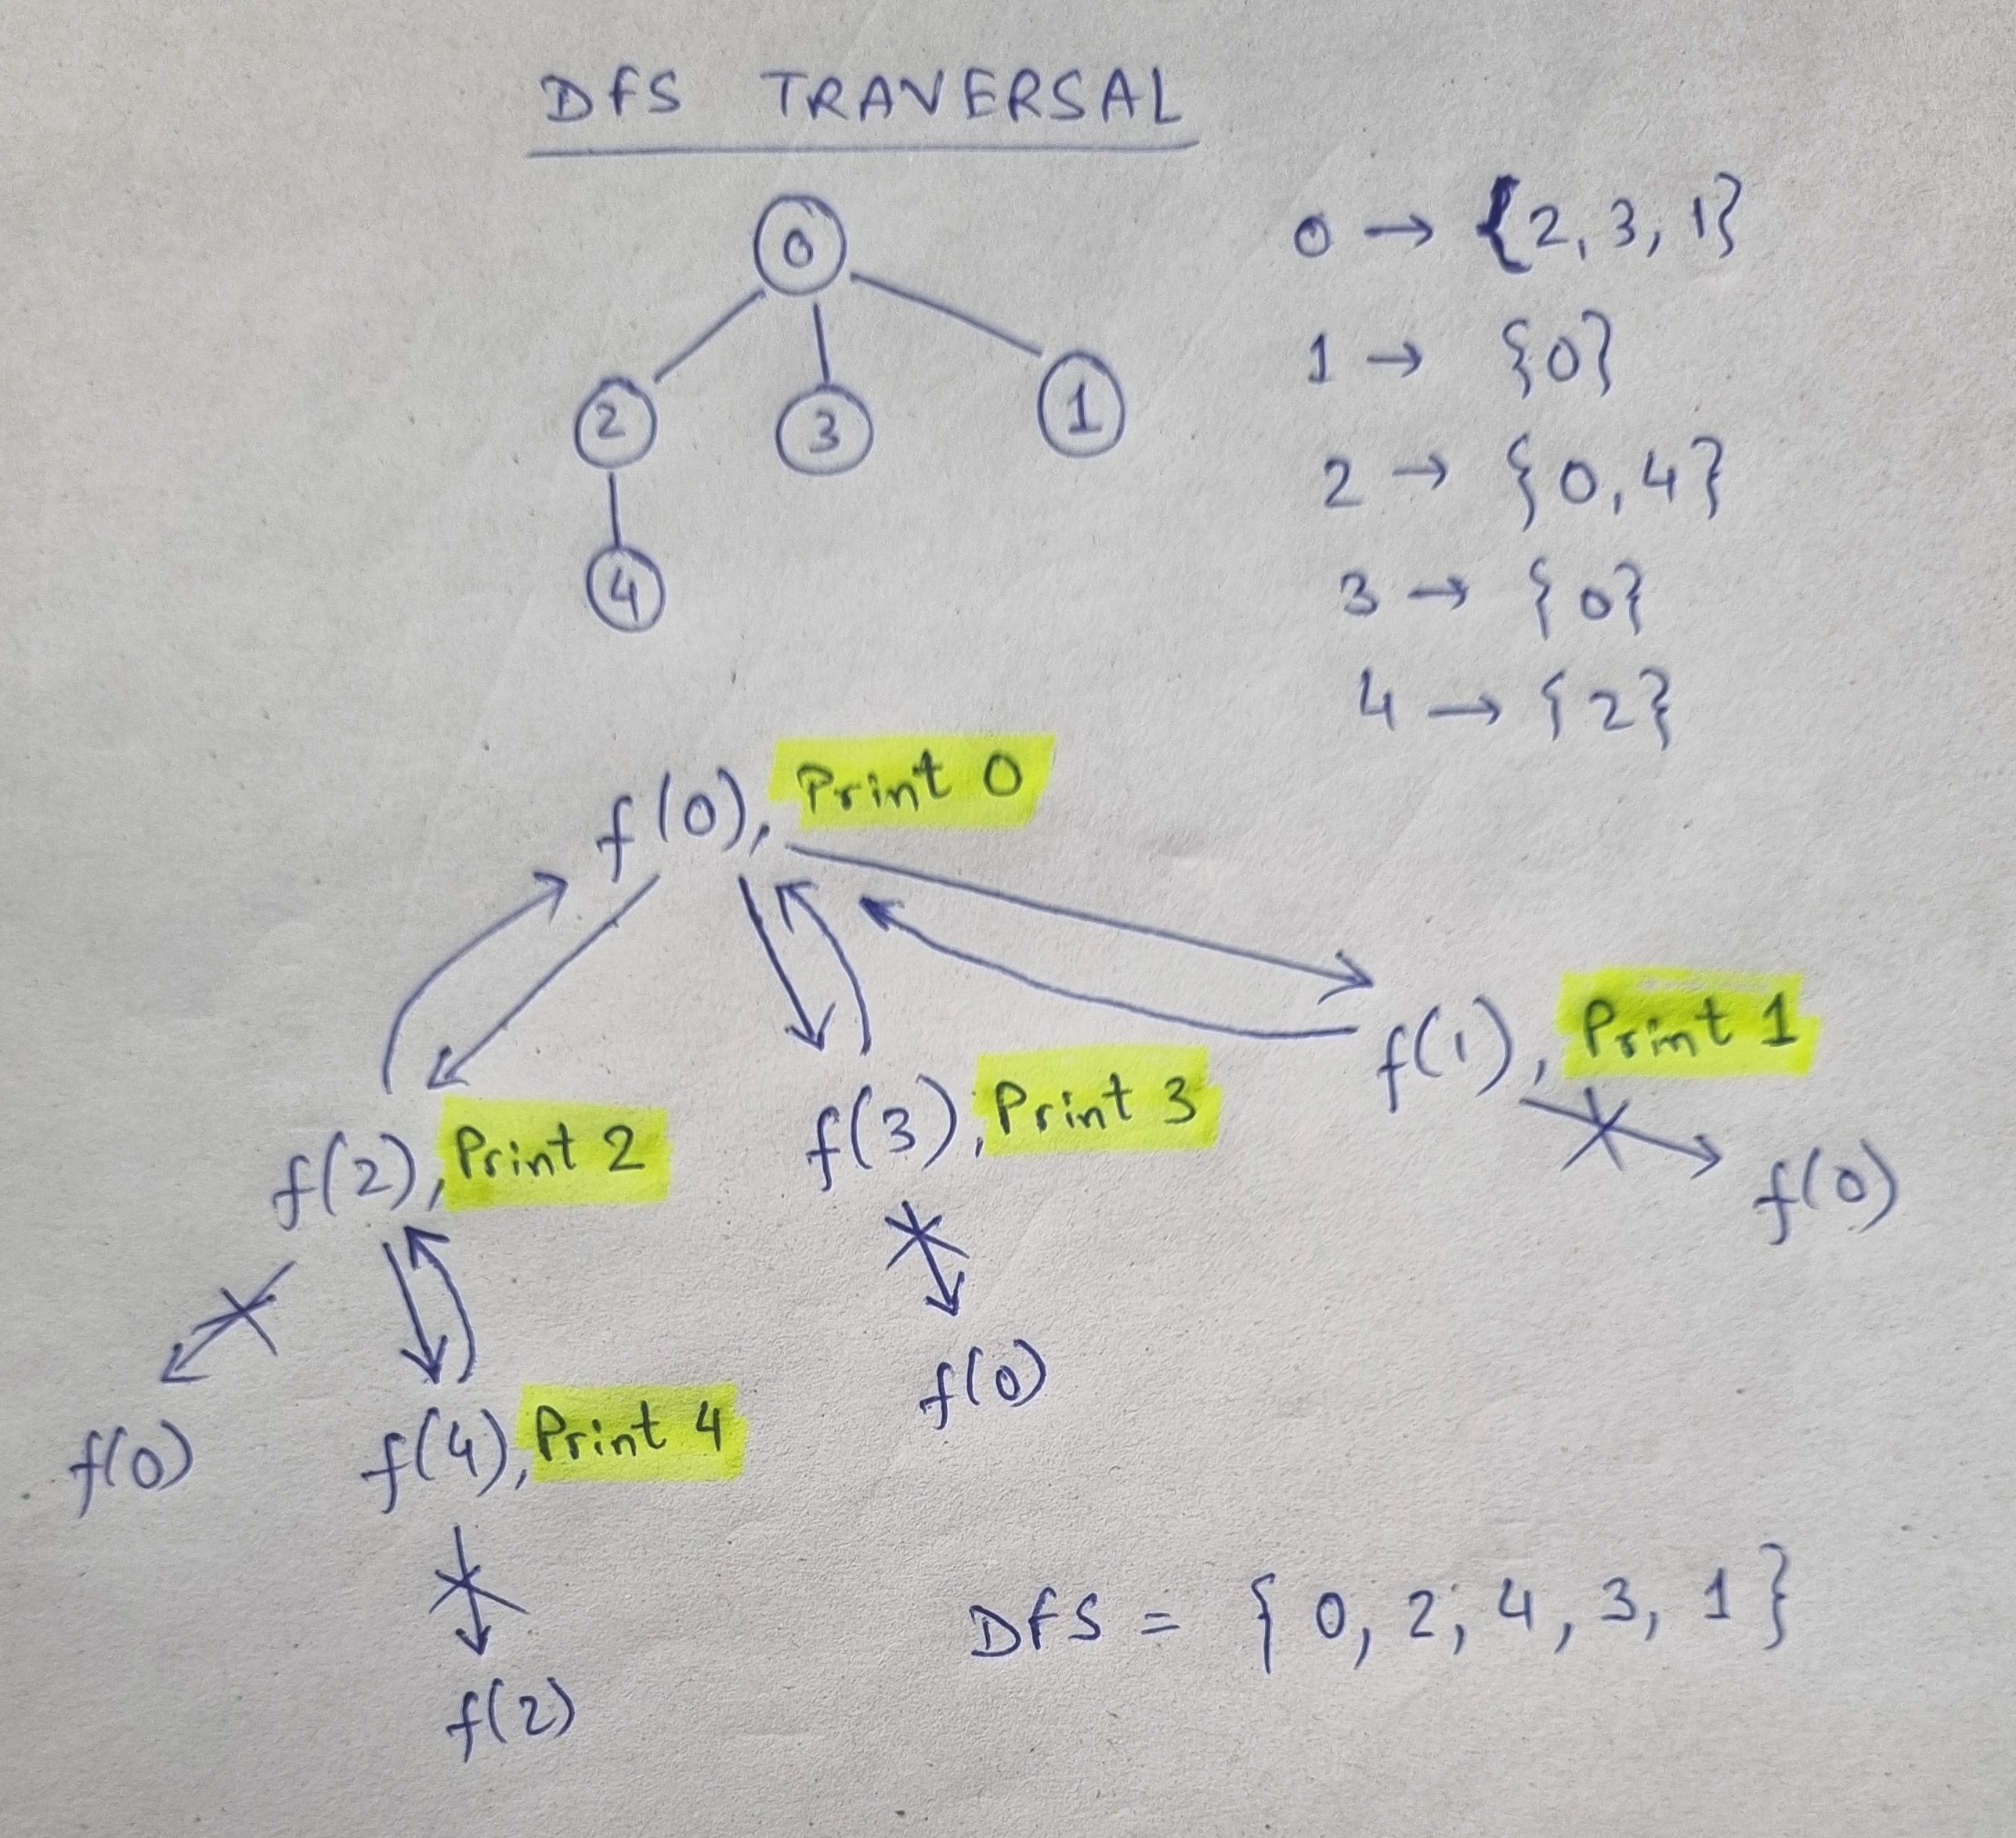 DFS TRAVERSAL
0
2 3 1
4
0 → {2, 3, 1}
1 → {0}
2 → {0, 4}
3 → {0}
4 → {2}
f(0), Print 0
f(2), Print 2
f(3), Print 3
f(1), Print 1
f(0)
f(0)
f(4), Print 4
f(0)
f(2)
DFS = {0, 2, 4, 3, 1}